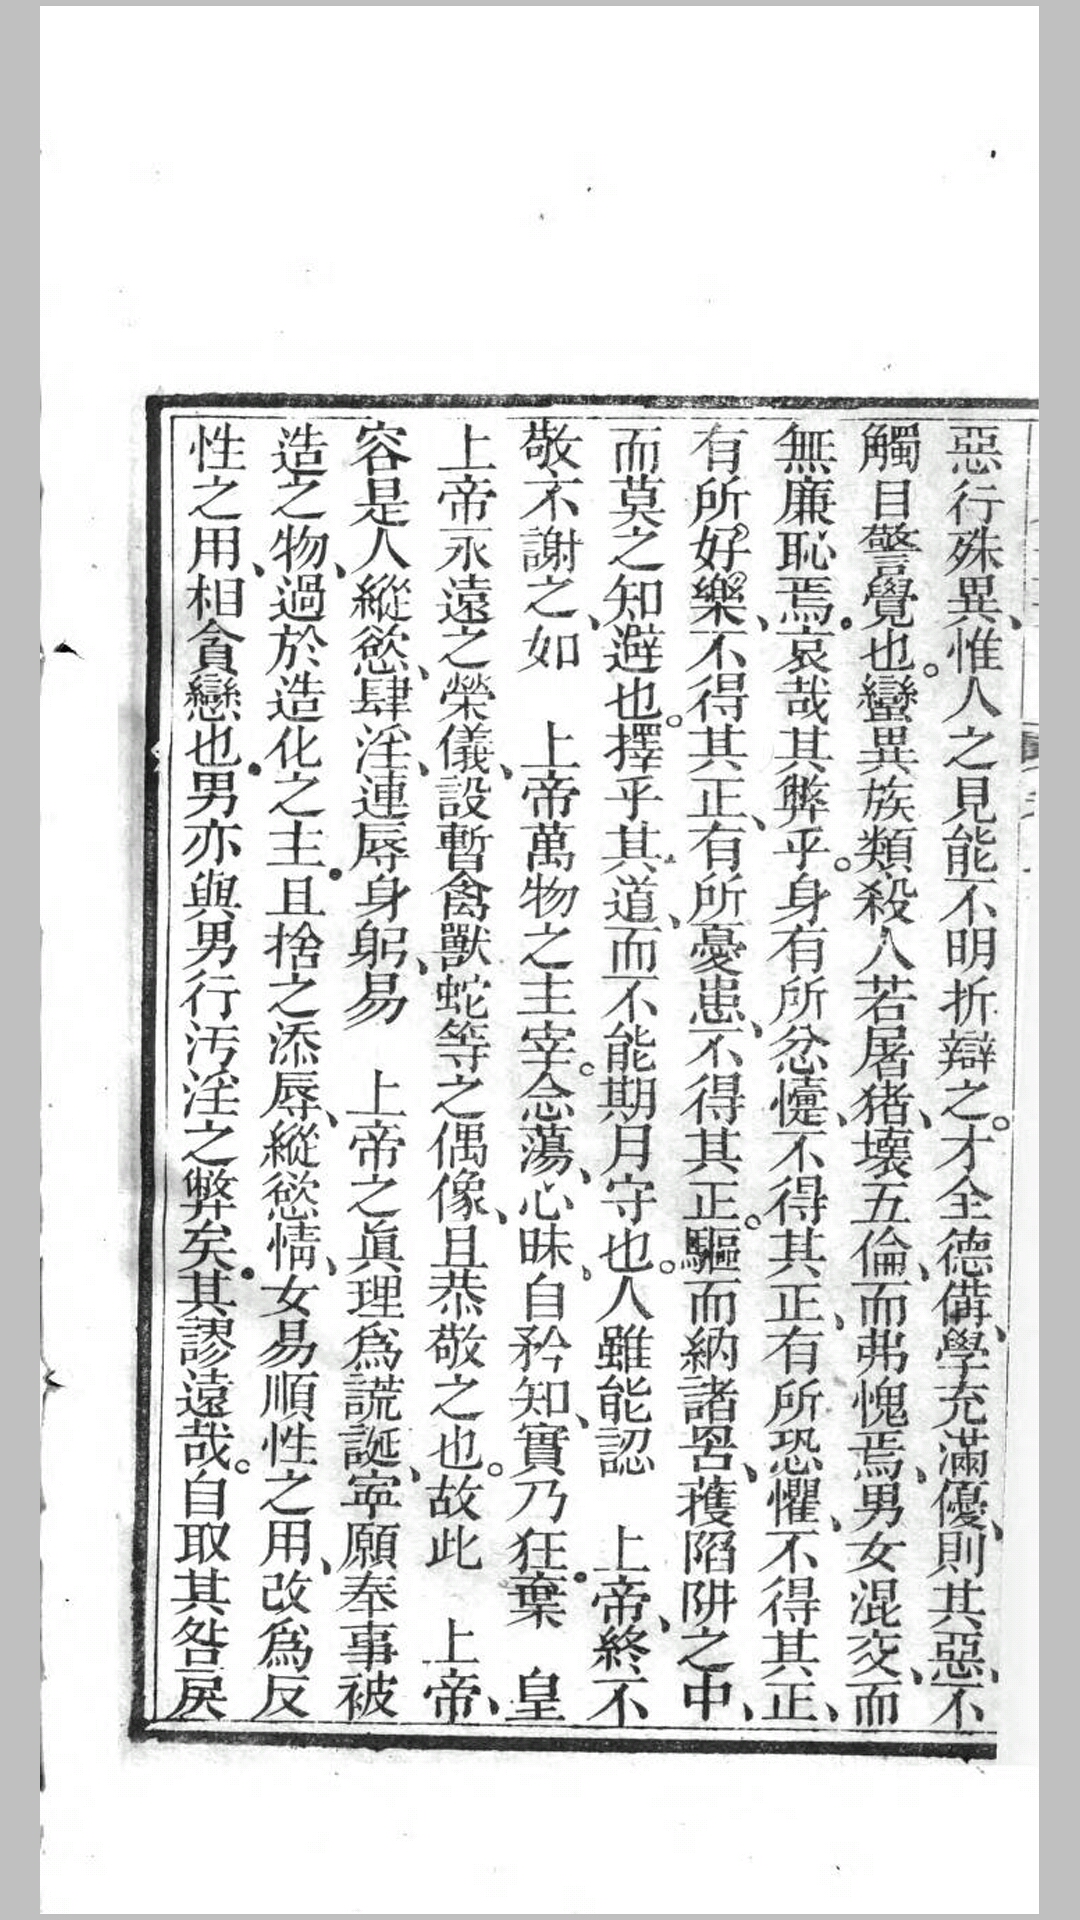 惡行殊異、惟人之見能不明折辯之。才全德備、學充滿優、則其惡、不
觸目警覺也。蠻異族類、殺人若屠猪、壞五倫、而弗愧焉、男女混交、而
無廉恥焉。哀哉其弊乎。身有所忿懥、不得其正、有所恐懼、不得其正、
有所好樂、不得其正、有所憂患、不得其正。驅而納諸罟、擭陷阱之中、
而莫之知避也。擇乎其道、而不能期月守也。人雖能認　上帝、終不
敬不謝之、如　上帝萬物之主宰。念蕩、心昧、自矜知、實乃狂。棄　皇
上帝永遠之榮儀、設暫禽獸蛇等之偶像、且恭敬之也。故此　上帝、
容是人縱慾、肆淫、連辱身躬、易　上帝之眞理爲謊誕、寜願奉事被
造之物、過於造化之主。且捨之添辱、縱慾情、女易順性之用、改爲反
性之用、相貪戀也。男亦與男行汚淫之弊矣。其謬遠哉。自取其咎戾